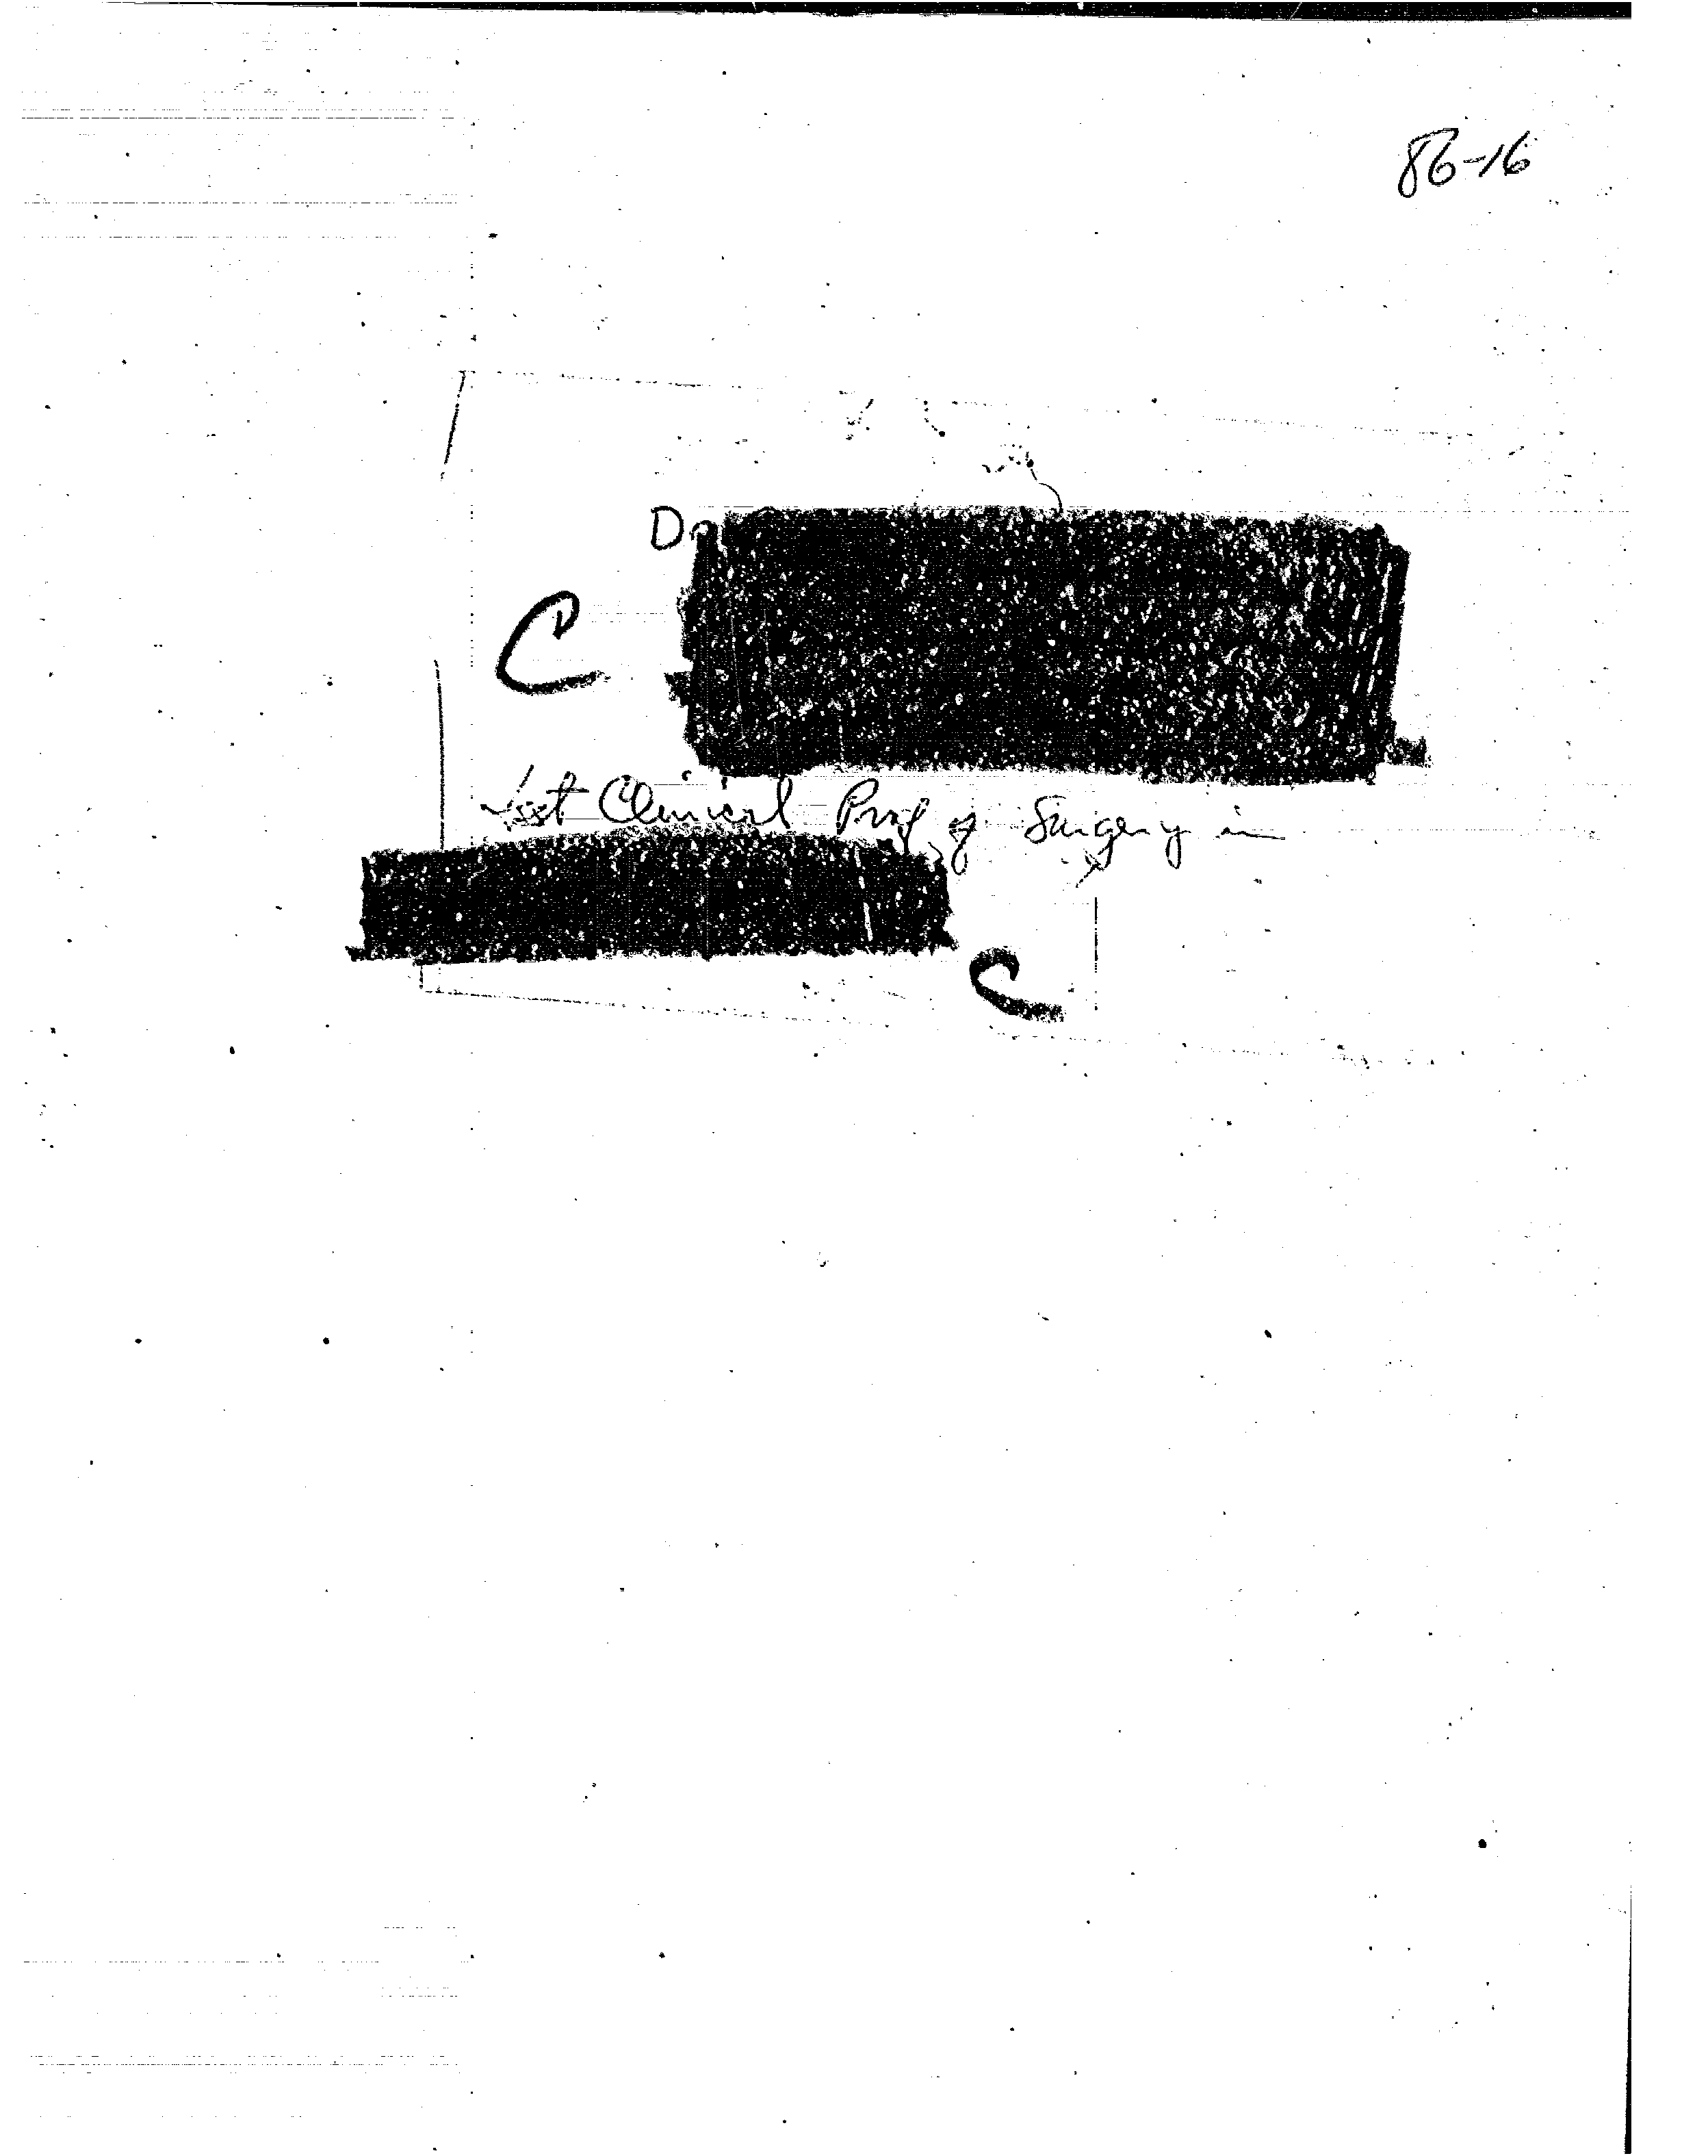 86-16
Dr
C
Clinical Prof of Surgery in
C